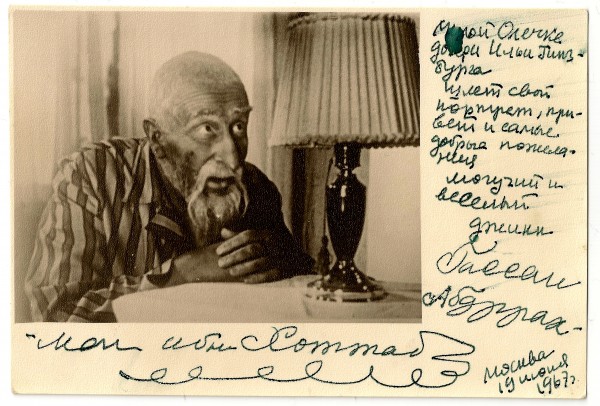 милой Олечке
дочери Ильи Гинз-
бурга
шлет свой
портрет, при-
вет и самые
добрые пожела-
ния
могучий и
веселый
джинн
Гассан
Абдуррах-
-ман ибн Хоттаб
Москва
19 июля
1967 г.